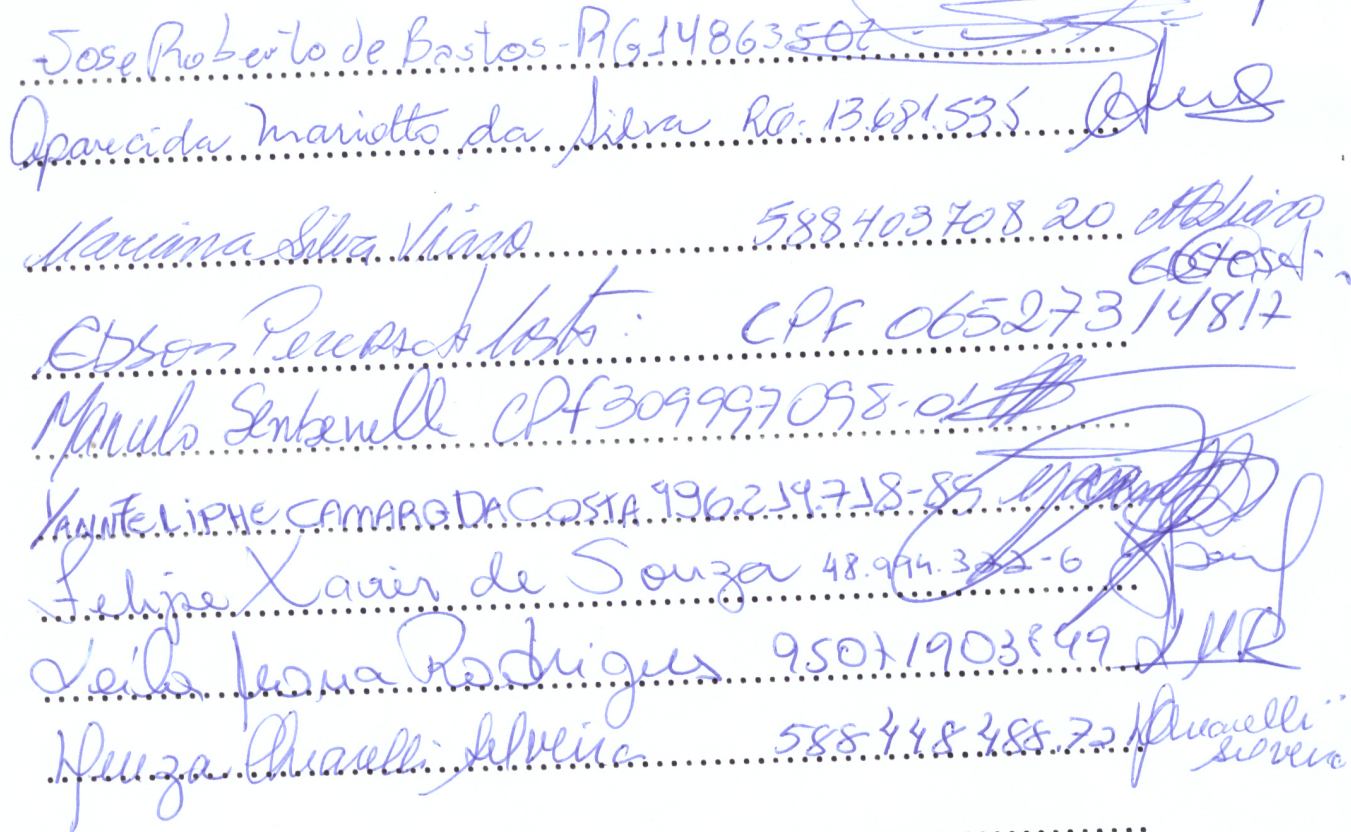 Jose Roberto de Bastos - RG 14863502
Aparecida Mariotto da Silva RG. 13.681.535
Mariana Silva Viano 588403708 20
Edson da Costa: CPF 06527314817
CPF 309997098-01
YANN FELIPHE CAMARGO DA COSTA 496.214.718-85
Felipe Xavier de Souza 48.994.332-6
Leila Rodrigues 95071903849 LMR
Neuza Chiarelli Silveira 588448488.72 Chiarelli
Silveira